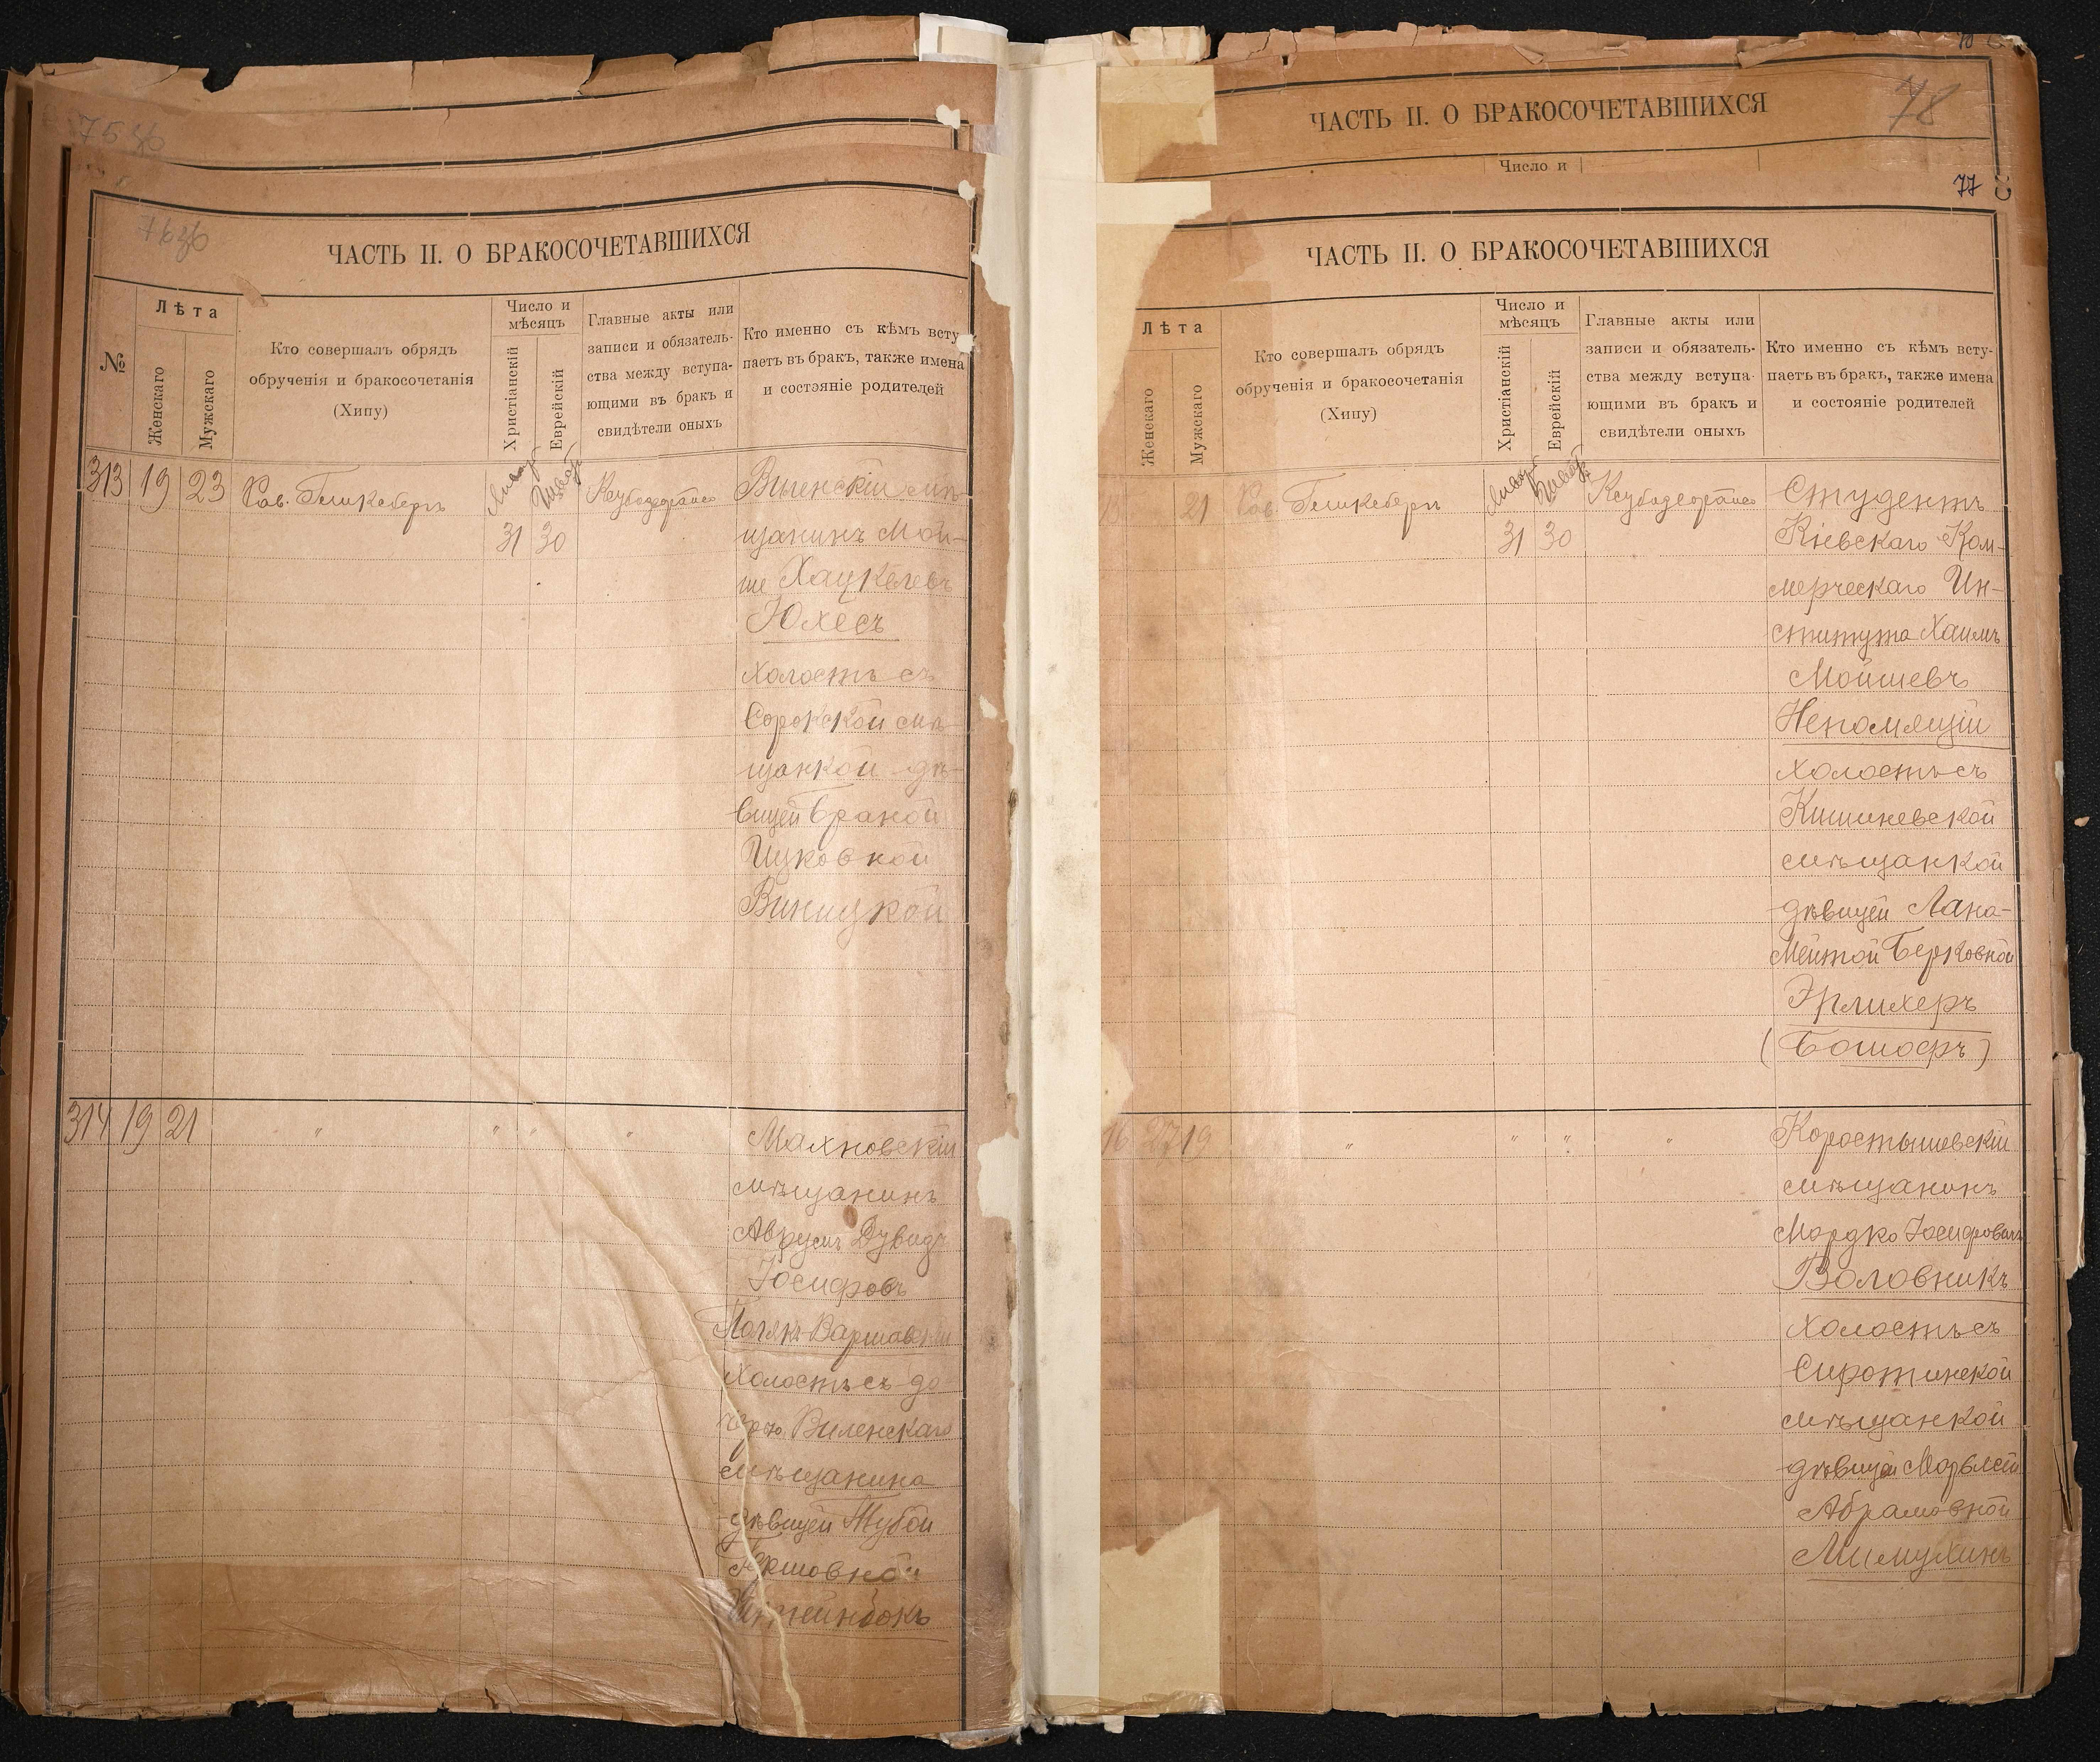 75 об
76 об
ЧАСТЬ II. О БРАКОСОЧЕТАВШИХСЯ
№
Лѣта
Женскаго
Мужскаго
Кто совершалъ обрядъ
обрученія и бракосочетанія
(Хипу)
Число и
мѣсяцъ
Христіанскій
Еврейскій
Главные акты или
записи и обязатель-
ства между вступа-
ющими въ бракъ и
свидѣтели оныхъ
Кто именно съ кѣмъ всту
паетъ въ бракъ, также имена
и состэяніе родителей
313 19 23 Рав. Гликсбергъ
31 30
Виленскій мѣ-
щанинъ Мой-
ше Хацкелевъ
Юхесъ
холостъ съ
Сорокской мѣ-
щанкой дѣ-
вицей Браной
Ицковной
Виницкой
314 19 21 " " " "
Махновскій
мѣщанинъ
Аврумъ Дувидъ
Іосифовъ
Полякъ-Варшавскій
холостъ съ до
черью Виленскаго
мѣщанина
дѣвицей Тубой
Гершовной
Штейнбокъ
ЧАСТЬ II. О БРАКОСОЧЕТАВШИХСЯ
78
Число и
77
ЧАСТЬ II. О БРАКОСОЧЕТАВШИХСЯ
Лѣта
Женскаго
Мужскаго
Кто совершалъ обрядъ
обрученія и бракосочетанія
(Хипу)
Число и
мѣсяцъ
Христіанскій
Еврейскій
Главные акты или
записи и обязатель-
ства между вступа-
ющими въ бракъ и
свидѣтели оныхъ
Кто именно съ кѣмъ всту-
паетъ въ бракъ, также имена
и состояніе родителей
21 Рав. Гликсбергъ
31 30
Студентъ
Кіевскаго Ком-
мерческаго Ин-
ститута Хаимъ
Мойшевъ
Непомящій
холостъ съ
Кишиневской
мѣщанкой
дѣвицей Хана-
Ментой Берковной
Эрлихеръ
(Бошоеръ)
27 19 " " " "
Коростышевскій
мѣщанинъ
Мордко Іосифовичъ
Воловникъ
холостъ съ
Сиротинской
мѣщанкой
дѣвицей
Абрамовной